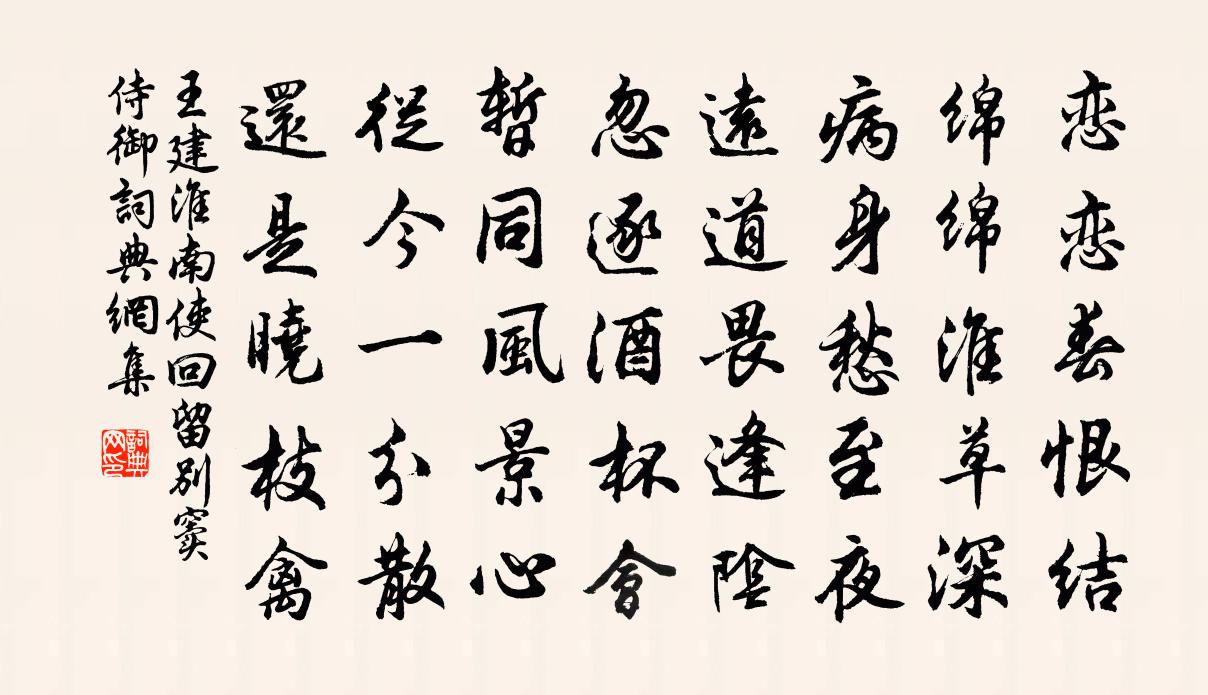 恋恋春恨结
绵绵淮草深
病身愁至夜
遠道畏逢陰
忽逐酒杯會
暫同風景心
從今一分散
還是曉枝禽
王建淮南使回留别窦
侍御詞典網集
詞典网印